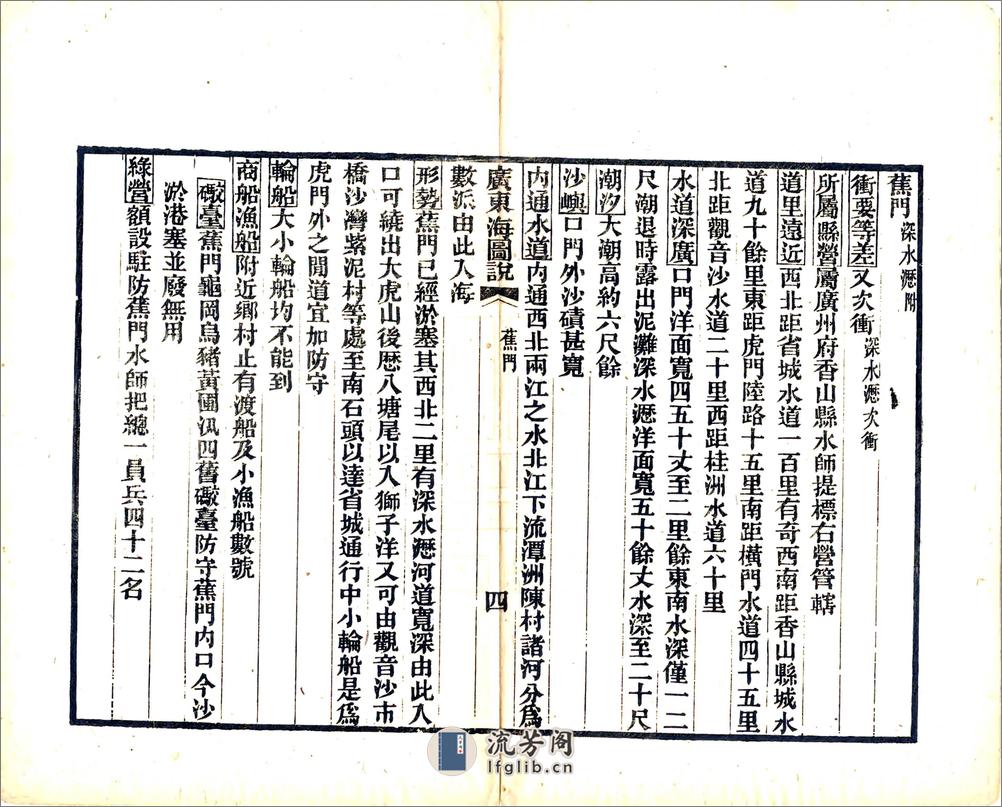 蕉門 深水瀝附
衝要等差又次衝 深水瀝次衝
所屬縣營屬廣州府香山縣水師提標右營管轄
道里遠近西北距省城水道一百里有奇西南距香山縣城水
道九十餘里東距虎門陸路十五里南距橫門水道四十五里
北距觀音沙水道二十里西距桂洲水道六十里
水道深廣口門洋面寬四五十丈至二里餘東南水深僅一二
尺潮退時露出泥灘深水瀝洋面寬五十餘丈水深至二十尺
潮汐大潮高約六尺餘
沙嶼口門外沙磧甚寬
內通水道內通西北兩江之水北江下流潭洲陳村諸河分爲
廣東海圖說 蕉門 四
數派由此入海
形勢蕉門已經淤塞其西北二里有深水瀝河道寬深由此入
口可繞出大虎山後歷八塘尾以入獅子洋又可由觀音沙市
橋沙灣紫泥村等處至南石頭以達省城通行中小輪船是爲
虎門外之閒道宜加防守
輪船大小輪船均不能到
商船漁船附近鄉村止有渡船及小漁船數號
礮臺蕉門龜岡烏豬黃圃汛四舊礮臺防守蕉門內口今沙
淤港塞並廢無用
綠營額設駐防蕉門水師把總一員兵四十二名
流芳阁
lfglib.cn